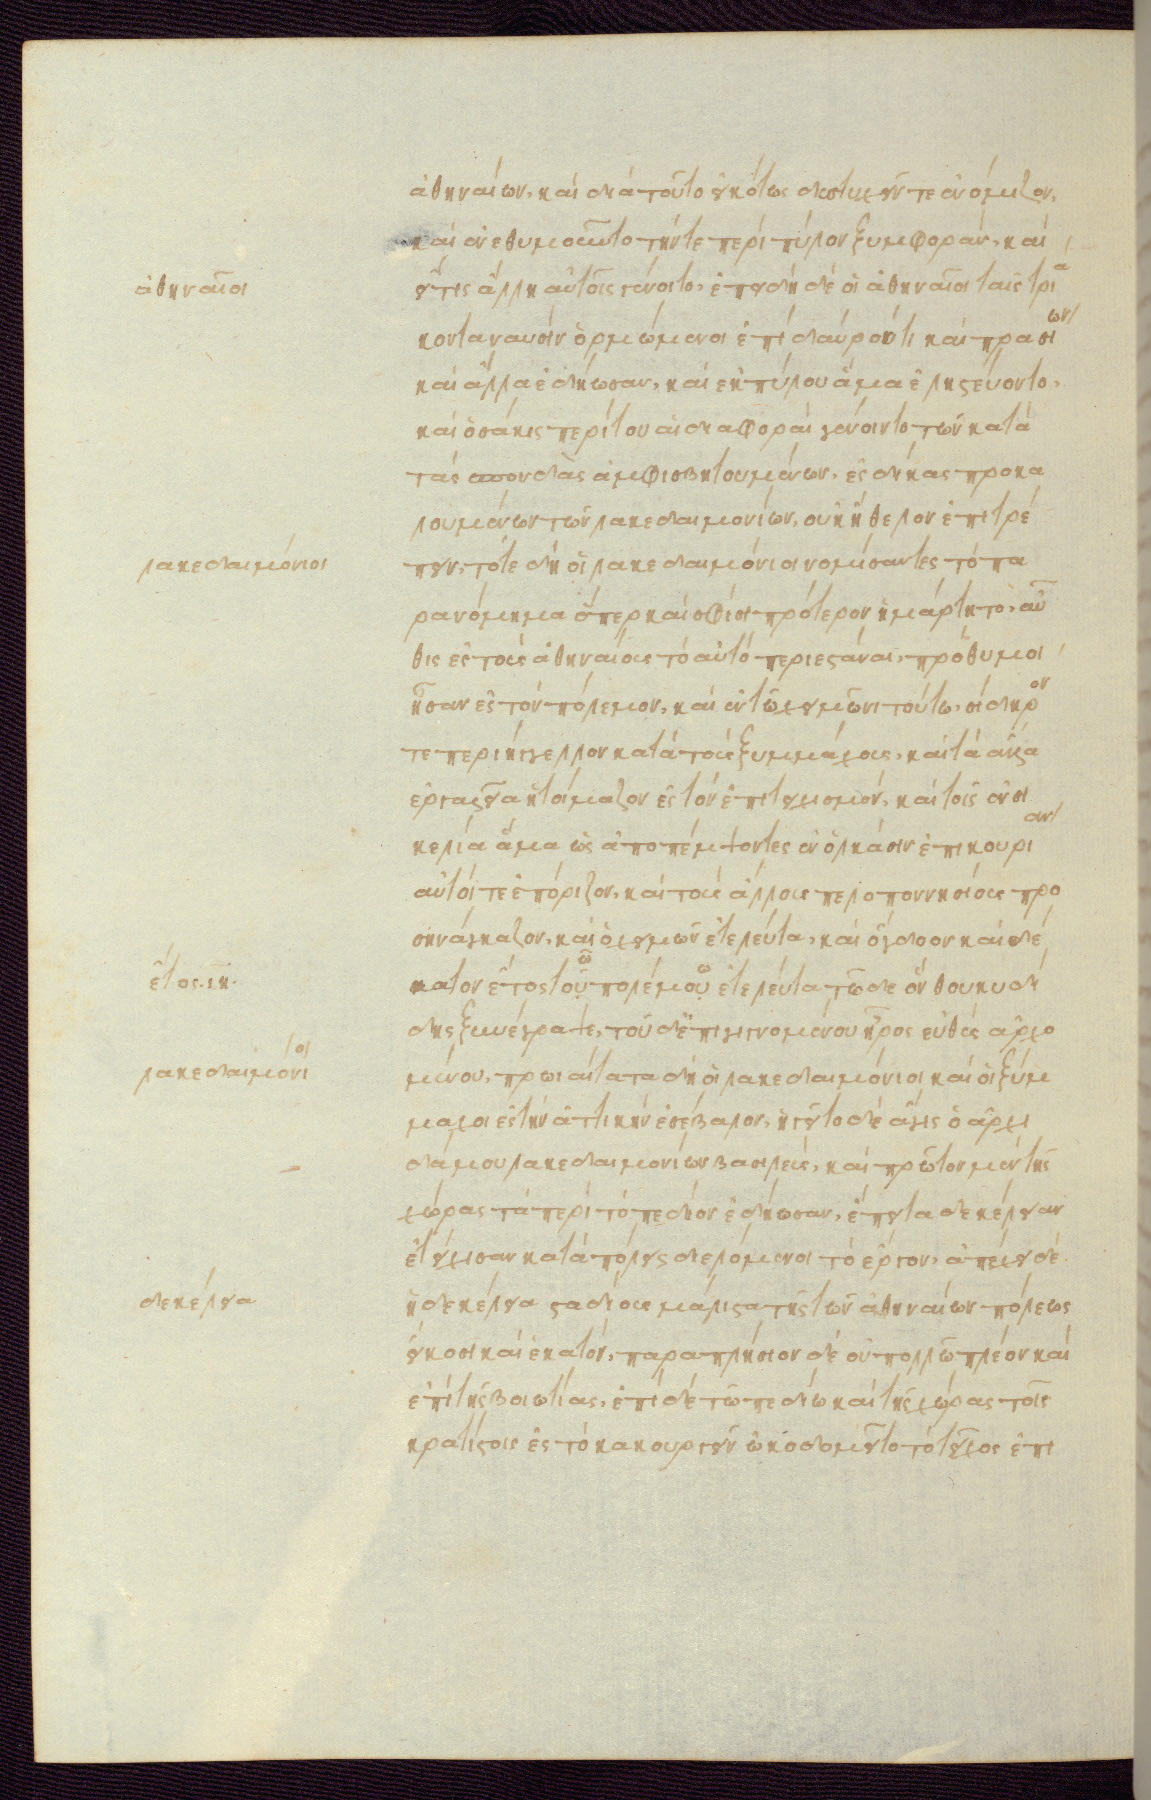 ἀθηναίων, καὶ διὰ τοῦτο εἰκότως δυστυχεῖν τε ἐνόμιζον,
καὶ ἐνεθυμοῦντο τήν τε περὶ πύλον ξυμφοράν, καὶ
ἀθηναῖοι
εἴ τις ἄλλη αὐτοῖς γένοιτο, ἐπειδὴ δὲ οἱ ἀθηναῖοι ταῖς τριά
κοντα ναυσὶν ὁρμώμενοι ἐπιδαύρου τι καὶ πρασιῶν
καὶ ἄλλα ἐδήωσαν, καὶ ἐκ πύλου ἅμα ἐληστεύοντο,
καὶ ὁσάκις περί του αἱ διαφοραὶ γένοιντο τῶν κατὰ
τὰς σπονδὰς ἀμφισβητουμένων, ἐς δίκας προκα
λουμένων τῶν λακεδαιμονίων, οὐκ ἤθελον ἐπιτρέ
λακεδαιμόνιοι
πειν, τότε δὴ οἱ λακεδαιμόνιοι νομίσαντες τὸ πα
ρανόμημα ὅπερ καὶ σφίσι πρότερον ἡμάρτητο, αὖ
θις ἐς τοὺς ἀθηναίους τὸ αὐτὸ περιεστάναι, πρόθυμοι
ἦσαν ἐς τὸν πόλεμον, καὶ ἐν τῷ χειμῶνι τούτω, σίδηρόν
τε περιήγγελλον κατὰ τοὺς ξυμμάχους, καὶ τὰ ἄλλα
ἐργαλεῖα ἡτοίμαζον ἐς τὸν ἐπιτειχισμόν, καὶ τοῖς ἐν σι
κελία ἅμα ὡς ἀποπέμψοντες ἐν ὁλκάσιν ἐπικουρίαν
αὐτοί τε ἐπόριζον, καὶ τοὺς ἄλλους πελοποννησίους προ
σηνάγκαζον, καὶ ὁ χειμὼν ἐτελεύτα, καὶ ὄγδοον καὶ δέ
ἔτος. ιη.
κατον ἔτος τοῦ πολέμου ἐτελεύτα τῶδε ὃν θουκυδί
δης ξυνέγραψε, τοῦ δ' ἐπιγιγνομένου ἦρος εὐθὺς ἀρχο
λακεδαιμόνιοι
μένου, πρωιαίτατα δὴ οἱ λακεδαιμόνιοι καὶ οἱ ξύμ
μαχοι ἐς τὴν ἀττικὴν ἐσέβαλον, ἡγεῖτο δὲ ἆγις ὁ ἀρχι
δάμου λακεδαιμονίων βασιλεύς, καὶ πρῶτον μὲν τῆς
χώρας τὰ περὶ τὸ πεδίον ἐδήωσαν, ἔπειτα δεκέλειαν
ἐτείχισαν κατὰ πόλεις διελόμενοι τὸ ἔργον, ἀπέχει δὲ
δεκέλεια
ἡ δεκέλεια σταδίους μάλιστα τῆς τῶν ἀθηναίων πόλεως
εἴκοσι καὶ ἑκατόν, παραπλήσιον δὲ οὐ πολλῷ πλέον καὶ
ἐπὶ τῆς βοιωτίας, ἐπὶ δὲ τῶ πεδίω καὶ τῆς χώρας τοῖς
κρατίστοις ἐς τὸ κακουργεῖν ὠκοδομεῖτο τὸ τεῖχος ἐπι